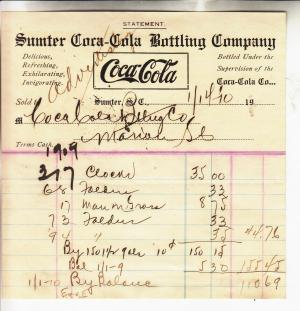 STATEMENT.
Sumter Coca-Cola Bottling Company
Delicious,
Refreshing,
Exhilarating,
Invigorating.
Coca-Cola
Bottled Under the
Supervision of the
Coca-Cola Co...
Advertising
Sold
Sumter, S. C. 1/1/10 19
M Coca Cola Bottling Co
Marion SC
Terms Cash.
1909
2/17 Clocks 35 00
68 Folders 33
17 8 75
73 Folders 33
94 " 35 44.76
By 150 gals 10¢ 150
Bal 1/1-9 5 30 155 45
1/1-10 By Balance 110 69